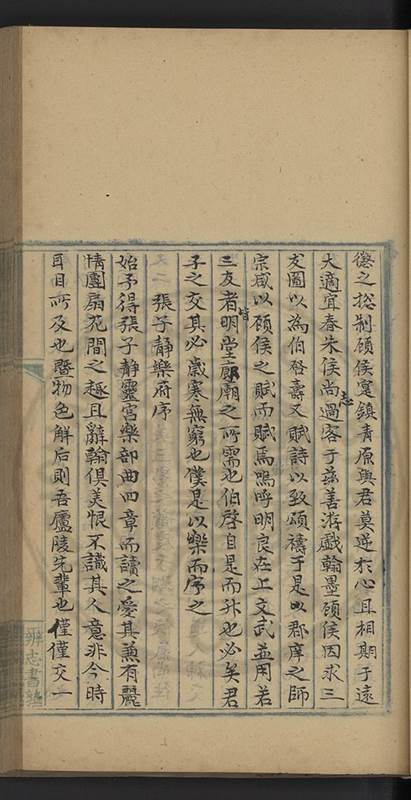 德之総制顔侯寔鎮青原與君莫逆於心且相期于遠
大適宜春朱侯尚志過客于茲善游戲翰墨顔侯因求三
友圖以為伯啓壽又賦詩以致頌禱于是以郡庠之師
宗咸以顔侯之賦而賦焉嗚呼明良在上文武並用若
三友者皆明堂郎廟之所需也伯啓自是而升也必矣君
子之交其必歲寒無窮也僕是以樂而序之
張子靜樂府序
始予得張子靜靈宮樂部曲四章而讀之愛其兼有麗
情團扇花間之極且辭翰俱美恨不識其人意非今時
耳目所及也 物色解后則吾廬陵先輩也僅僅交一
辨志書塾